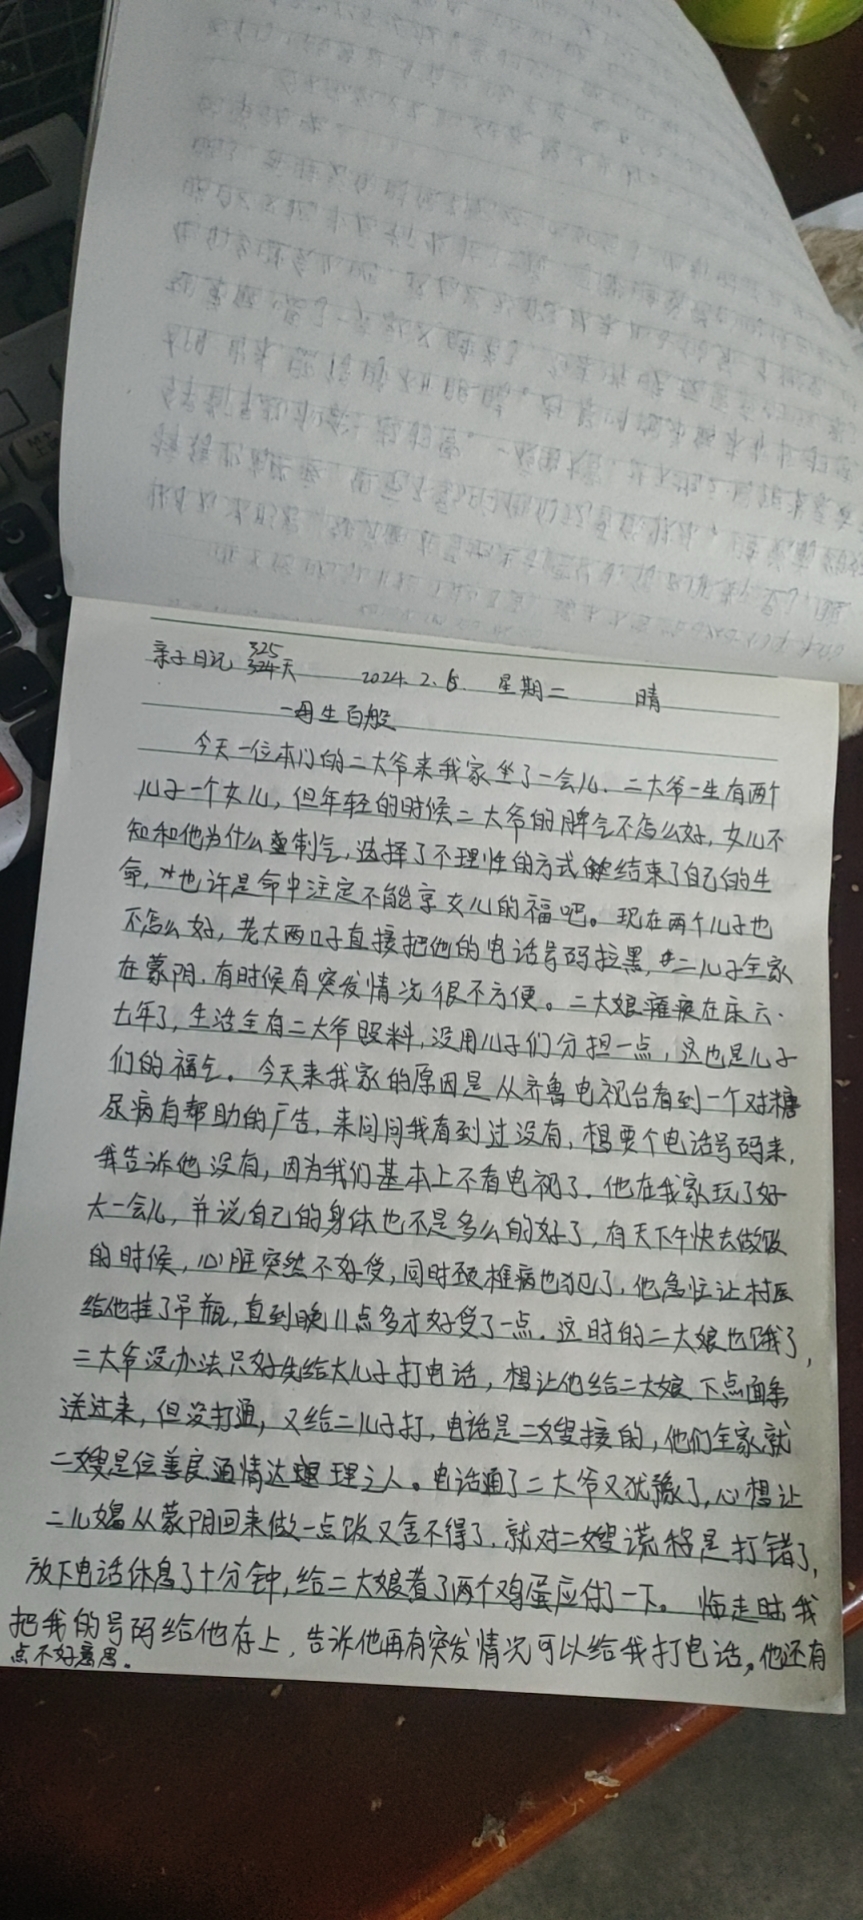 亲子日记 325天 2024.2.6. 星期二 晴
一母生百般
今天一位本门的二大爷来我家坐了一会儿.二大爷一生有两个
儿子一个女儿,但年轻的时候二大爷的脾气不怎么好,女儿不
知和他为什么制气,选择了不理性的方式结束了自己的生
命,也许是命中注定不能享女儿的福吧。现在两个儿子也
不怎么好,老大两口子直接把他的电话号码拉黑,二儿子全家
在蒙阴,有时候有突发情况很不方便。二大娘瘫痪在床六、
七年了,生活全有二大爷照料,没用儿子们分担一点,这也是儿子
们的福气。今天来我家的原因是从齐鲁电视台看到一个对糖
尿病有帮助的广告,来问问我看到过没有,想要个电话号码来,
我告诉他没有,因为我们基本上不看电视了.他在我家玩了好
大一会儿,并说自己的身体也不是多么的好了,有天下午快去做饭
的时候,心脏突然不好受,同时颈椎病也犯了,他急忙让村医
给他挂了吊瓶,直到晚11点多才好受了一点.这时的二大娘也饿了,
二大爷没办法只好先给大儿子打电话,想让他给二大娘下点面条
送过来,但没打通,又给二儿子打,电话是二嫂接的,他们全家就
二嫂是位善良通情达理之人。电话通了二大爷又犹豫了,心想让
二儿媳从蒙阴回来做一点饭又舍不得了,就对二嫂谎称是打错了,
放下电话休息了十分钟,给二大娘煮了两个鸡蛋应付了一下。临走时我
把我的号码给他存上,告诉他再有突发情况可以给我打电话,他还有
点不好意思.